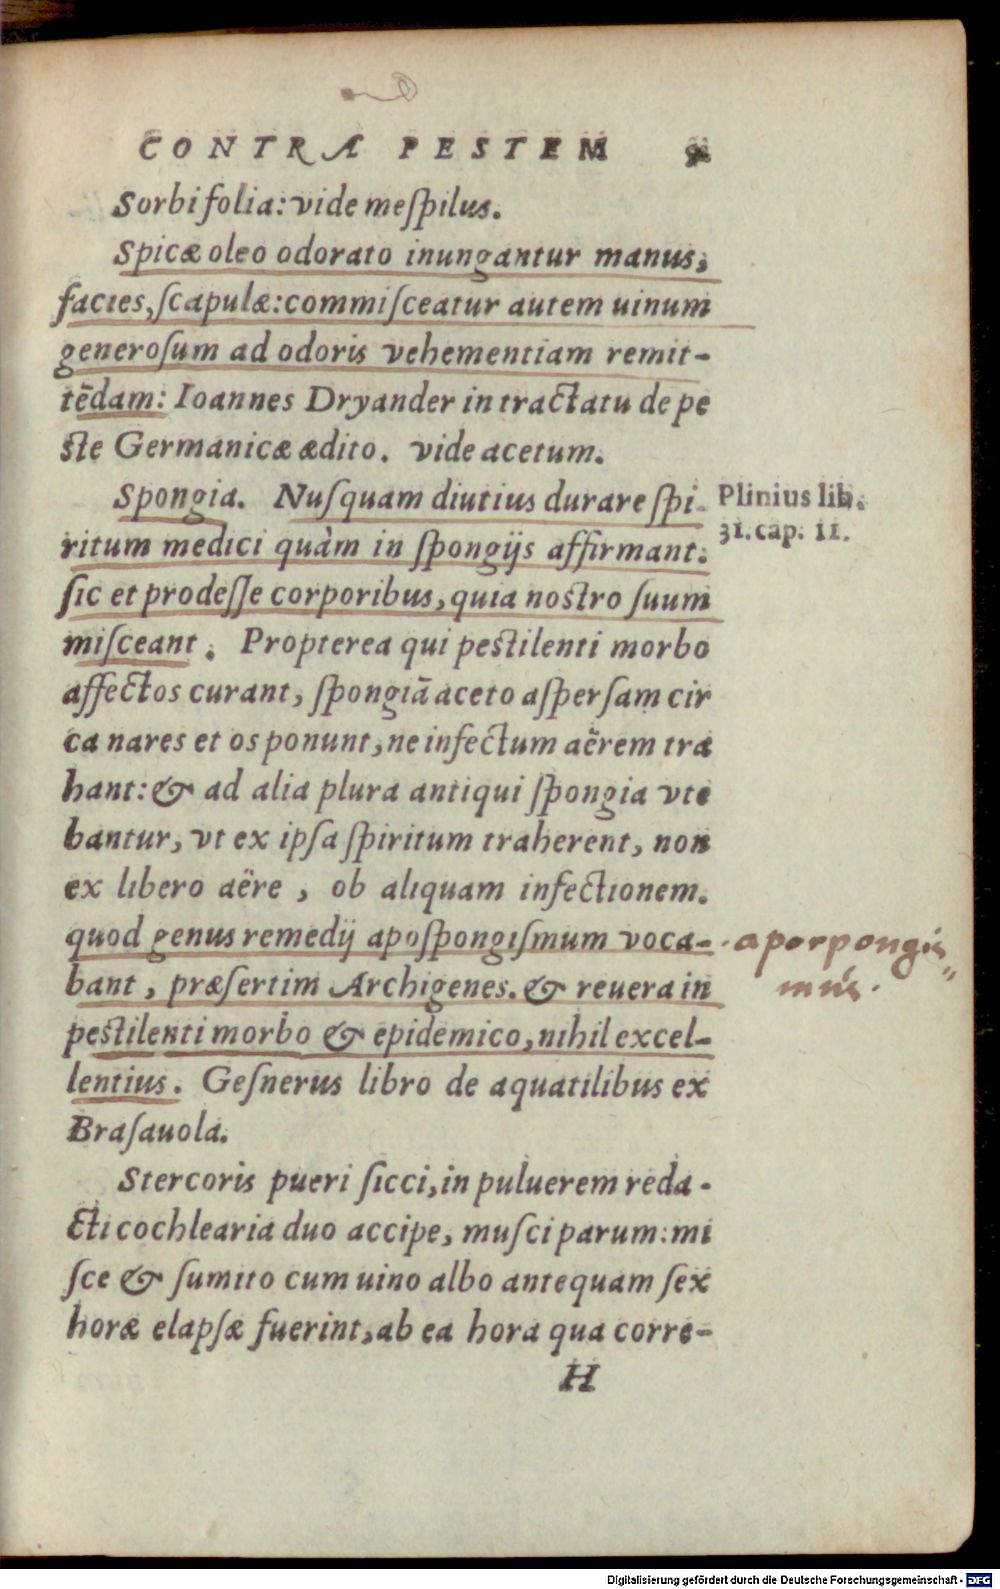 CONTRA PESTEM
Sorbi folia: vide meſpilus.
Spicæ oleo odorato inungantur manus,
facies, ſcapulæ: commiſceatur autem uinum
generoſum ad odoris vehementiam remit-
tēdam: Ioannes Dryander in tractatu de pe
ſte Germanicæ ædito. vide acetum.
Spongia. Nuſquam diutius durare ſpi-
ritum medici quàm in ſpongijs affirmant:
ſic et prodeſſe corporibus, quia noſtro ſuum
miſceant. Propterea qui peſtilenti morbo
affectos curant, ſpongiā aceto aſperſam cir
ca nares et os ponunt, ne infectum aërem tra
hant: & ad alia plura antiqui ſpongia vte
bantur, vt ex ipſa ſpiritum traherent, non
ex libero aëre, ob aliquam infectionem.
quod genus remedij apoſpongiſmum voca-
bant, præſertim Archigenes. & reuera in
peſtilenti morbo & epidemico, nihil excel-
lentius. Geſnerus libro de aquatilibus ex
Braſauola.
Stercoris pueri ſicci, in puluerem reda-
cti cochlearia duo accipe, muſci parum: mi
ſce & ſumito cum uino albo antequam ſex
horæ elapſæ fuerint, ab ea hora qua corre-
H
Plinius lib.
31. cap. 11.
Digitalisierung gefördert durch die Deutsche Forschungsgemeinschaft - DFG